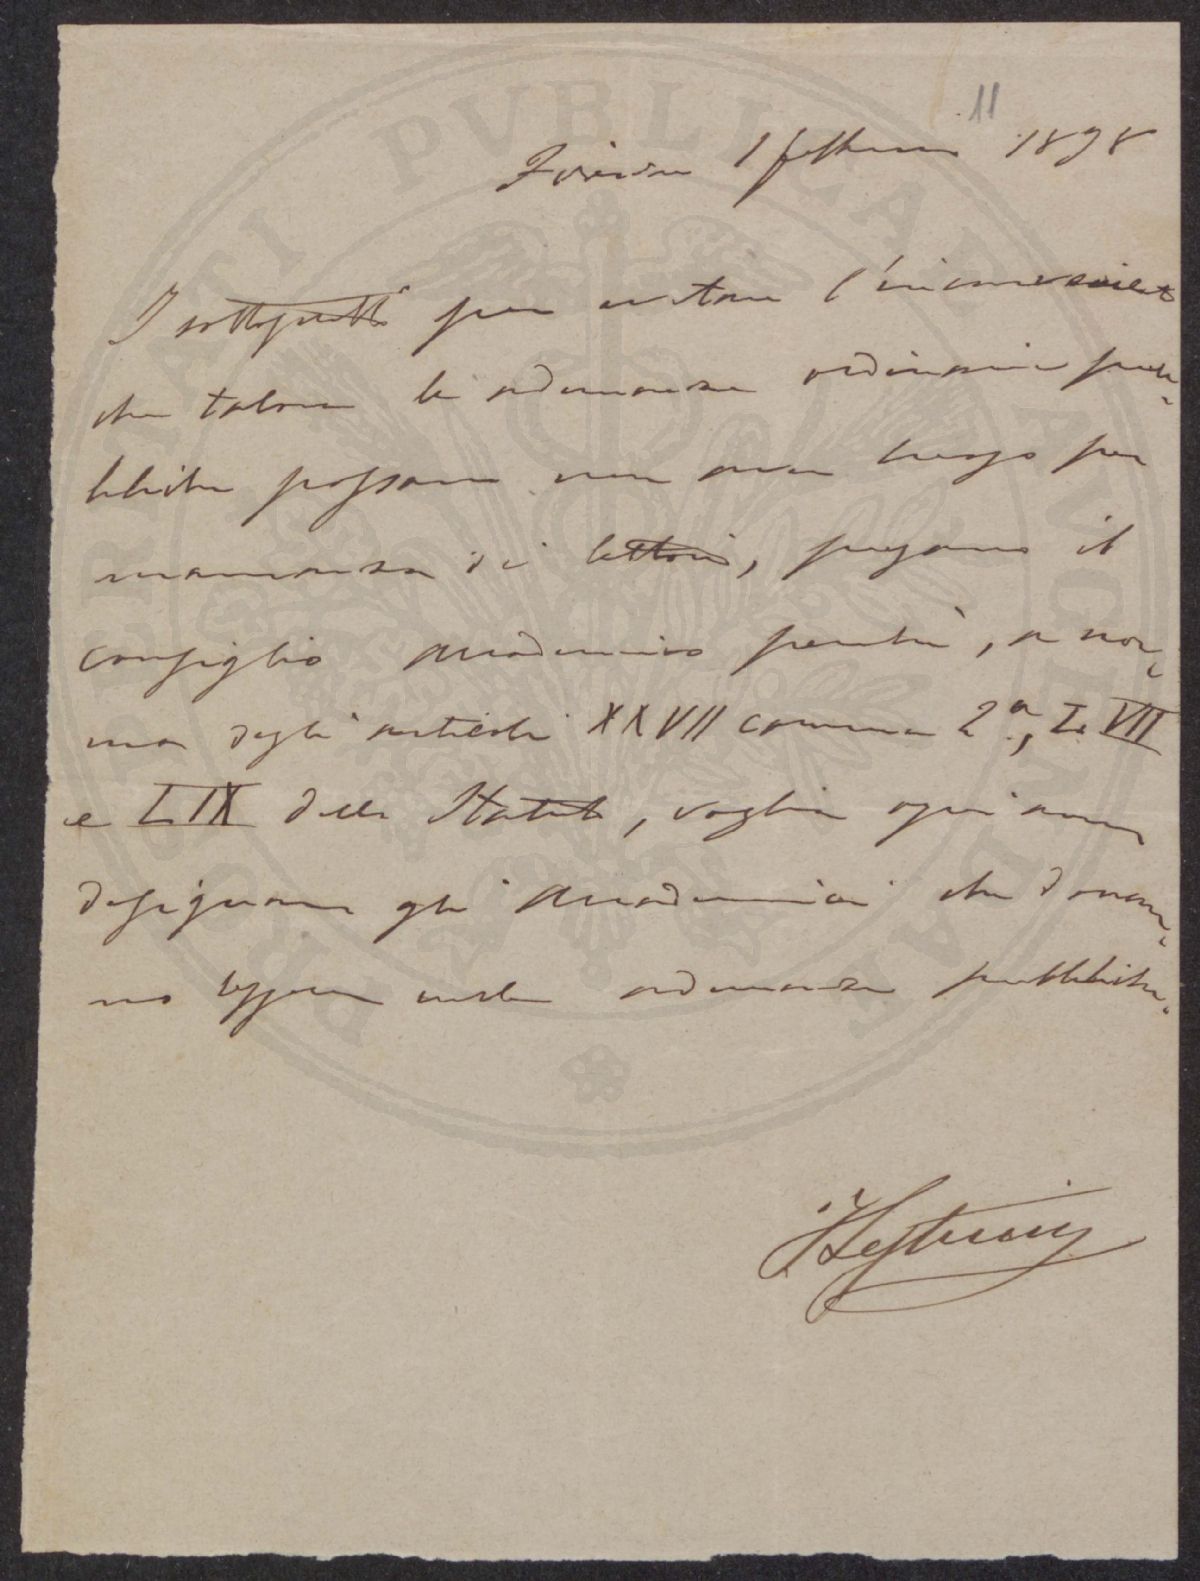 11
Firenze 1 febbraio 1898
I sottoscritti per evitare l'inconveniente
che talora le adunanze ordinarie pub-
bliche possano non aver luogo per
mancanza di lettori, pregano il
Consiglio Accademico perché, a nor-
ma degli articoli XXVII comma 2°, LVII
e LIX dello Statuto, voglia ogni anno
designare gli Accademici che dovran-
no leggere nelle adunanze pubbliche.